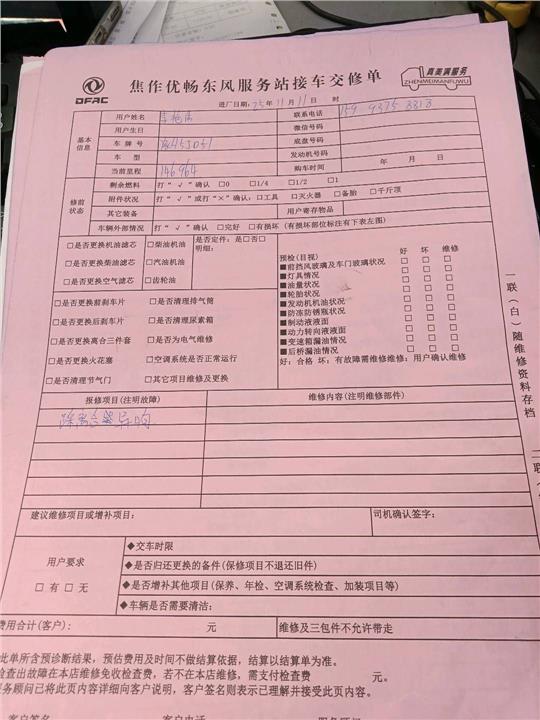 DFAC
焦作优畅东风服务站接车交修单
真美满服务
ZHENMEIMANFUWU
进厂日期：25年11月11日 时
基本信息
用户姓名
联系电话 159 9375 8313
用户生日
微信号码
车牌号
底盘号码
车型
发动机号码
当前里程 146964
购车时间 年 月 日
修前状态
剩余燃料 打“√”确认 □0 □1/4 □1/2 □1
附件状况 打“√”或打“×”确认：□工具 □灭火器 □备胎 □千斤顶
其它装备
用户寄存物品
车辆外部情况 打“√”确认 □完好 □有损坏（有损坏部位标注有下表左图）
□是否更换机油滤芯 □柴油机油
□是否更换柴油滤芯 □汽油机油
□是否更换空气滤芯 □齿轮油
是否定件：是□否□
明细：
□是否更换前刹车片 □是否清理排气筒
□是否更换后刹车片 □是否清理尿素箱
□是否更换离合三件套 □是否为电气维修
□是否更换火花塞 □空调系统是否正常运行
□是否清理节气门 □其它项目维修及更换
预检(目视) 好 坏 维修
■前挡风玻璃及车门玻璃状况 □ □ □
■灯具情况 □ □ □
■油量状况 □ □ □
■轮胎状况 □ □ □
■发动机机油状况 □ □ □
■防冻防锈瓶状况 □ □ □
■制动液液面 □ □ □
■动力转向液液面 □ □ □
■变速箱漏油情况 □ □ □
■后桥漏油情况 □ □ □
好：合格 坏：有故障需维修维修：用户确认维修
报修项目(注明故障)
维修内容(注明维修部件)
踩离合器异响
建议维修项目或增补项目：
司机确认签字：
用户要求
□有□无
◆交车时限
◆是否归还更换的备件(保修项目不退还旧件)
◆是否增补其他项目(保养、年检、空调系统检查、加装项目等)
◆车辆是否需要清洁：
费用合计(客户)： 元
维修及三包件不允许带走
此单所含预诊断结果，预估费用及时间不做结算依据，结算以结算单为准。
检查出故障在本店维修免收检查费，若不在本店维修，需支付检查费 元。
服务顾问已将此页内容详细向客户说明，客户签名则表示已理解并接受此页内容。
客户签名
客户电话
服务顾问
一联（白）随维修资料存档